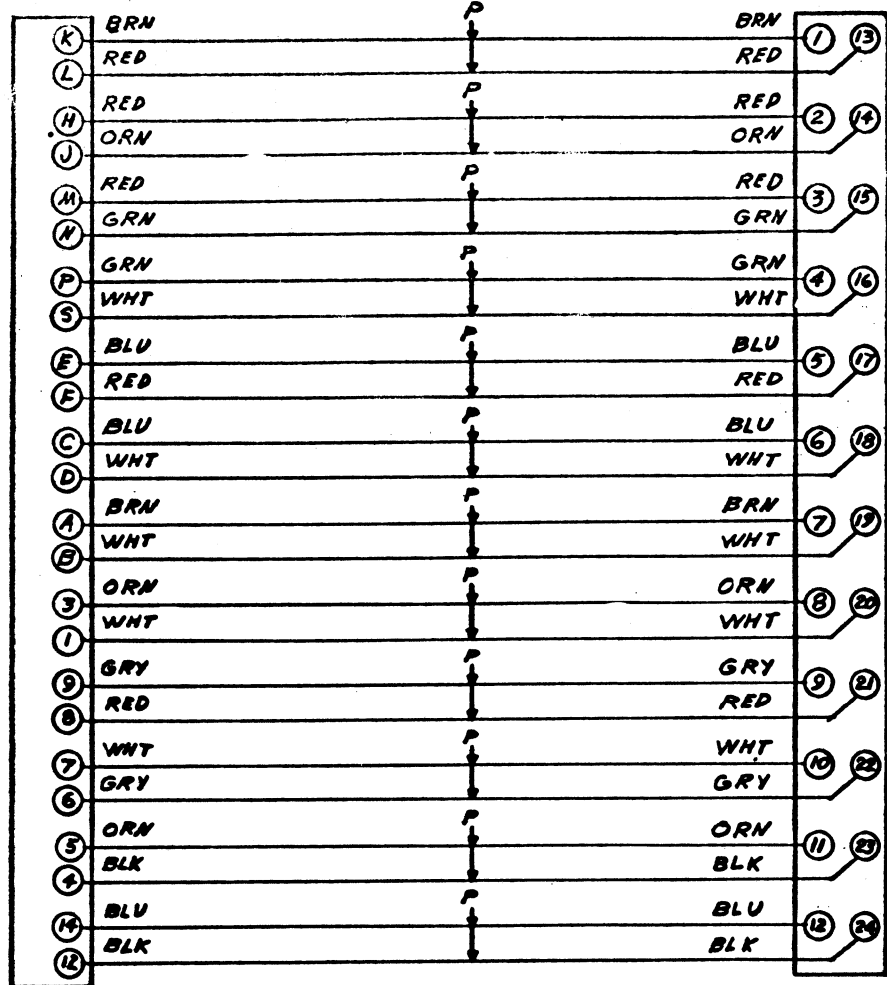 P
K BRN BRN 1 13
L RED RED
P
H RED RED 2 14
J ORN ORN
P
M RED RED 3 15
N GRN GRN
P
P GRN GRN 4 16
S WHT WHT
P
E BLU BLU 5 17
F RED RED
P
C BLU BLU 6 18
D WHT WHT
P
A BRN BRN 7 19
B WHT WHT
P
3 ORN ORN 8 20
1 WHT WHT
P
9 GRY GRY 9 21
8 RED RED
P
7 WHT WHT 10 22
6 GRY GRY
P
5 ORN ORN 11 23
4 BLK BLK
P
14 BLU BLU 12 24
12 BLK BLK